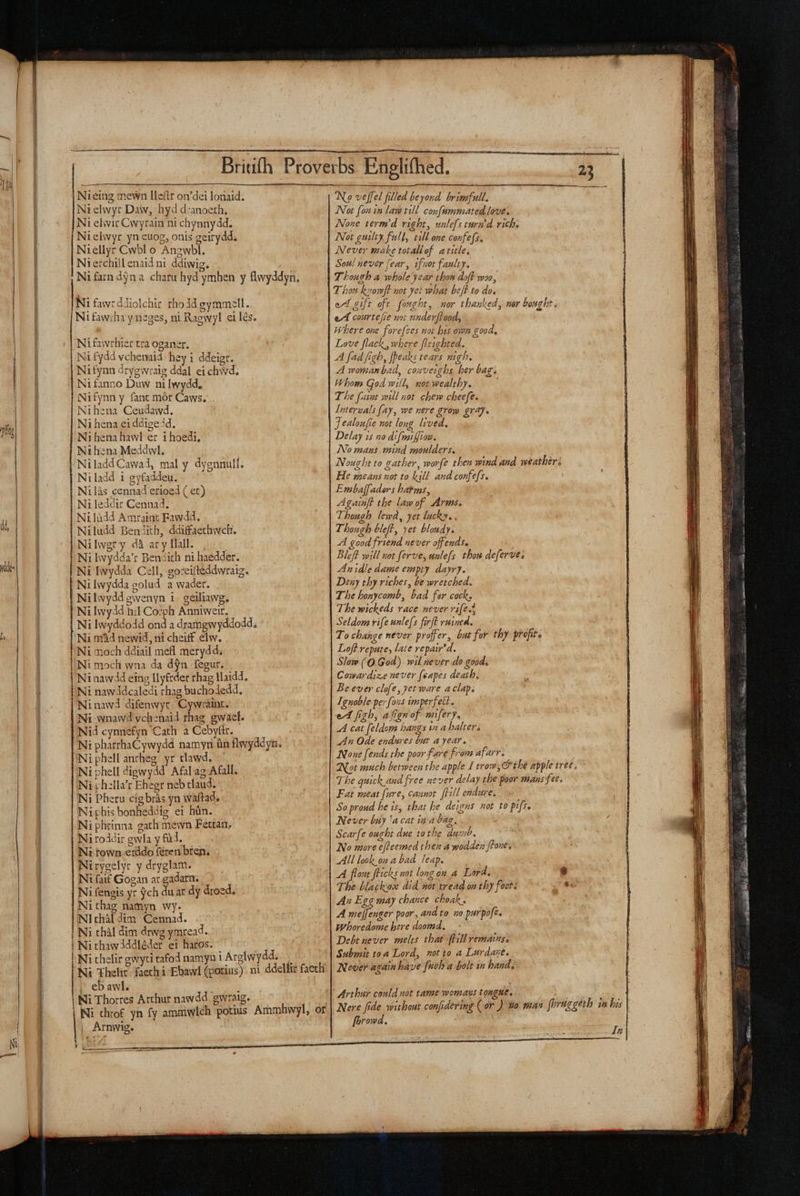 Brittish Proverbs Englished. 23
Ni eing mewn llestr on'dei lonaid.
Ni elwyr Daw, hyd d'anoeth.
Ni elwir Cwyrain ni chynnydd.
Ni elwyr yn euog, onis geirydd.
Ni ellyr Cwbl o Angwbl.
Ni erchill enaid ni ddiwig.
Ni farn dŷn a charu hyd ymhen y flwyddyn,
Ni fawrddiolchir rhodd gymmell.
Ni fawrha ynages, ni Ragwyl ei lês.
Ni fawrhier tra oganer.
Ni fydd vchenaid heyi ddeigr.
Ni fynn drygwraig ddal ei chŵd.
Ni fanno Duw ni lwydd.
Ni fynn y fant môr Caws.
Ni hena Ceudawd.
Ni hena eiddigedd.
Ni hena hawl er i hoedi.
Ni hena Meddwl.
Ni ladd Cawad, mal y dygnnull.
Ni ladd i gyfaddeu.
Ni lâs cennad erioed (er)
Ni leddir Cennad.
Ni lûdd Amraint Fawdd.
Ni ludd Bendith, ddiffaethwch.
Ni lwgr y dâ ar y llall.
Ni lwydda'r Bendith ni haedder.
Ni lwydda Cell, goreilêddwraig.
Ni lwydda golud a wader.
Ni lwydd gwenyn i geiliawg.
Ni lwydd hil Corph Anniweir.
Ni lwyddodd ond a dramgwyddodd.
Ni mâd newid, ni cheiff elw.
Ni moch ddiail mefl merydd.
Ni moch wna da dŷn segur.
Ni nawdd eing llyfrder rhag llaidd.
Ni nawddcaledi rhag buchodedd.
Ni nawd difenwyr Cywraint.
Ni wnawd vchenaid rhag gwael.
Nid cynnefyn Cath â Cebystr.
Ni pharrhaCywydd namyn ûn flwyddyn.
Ni phell anrheg yr tlawd.
Ni phell digwydd Afal ag Afall.
Ni phella'r Ehegr neb tlaud.
Ni Pheru cig brâs yn wastad.
Ni phis bonheddig ei hûn.
Ni phrinna gath mewn Fettan.
Ni roddir gwla y fûd.
Ni rown erddo feren bren.
Ni rygelyr y dryglam.
Ni saif Gogan ar gadarn.
Ni sengis yr ŷch du ar dy droed.
Ni thag namyn wy.
Ni châl dim Cennad.
Ni thâl dim drwg ymread.
Ni thawddlêder ei haros.
Ni thelir gwyti tafod namyn i Arglwydd.
Ni Thelir saeth i Ebawl (potius) ni ddellir saeth
eb awl.
Ni Thorres Arthur nawdd gwraig.
Ni throf yn fy ammwlch potius Ammhwyl, or
Arnwig.
No vessel filled beyond brimfull.
Not son in law till consummated love.
None term'd right, unless turn'd rich.
Not guilty full, till one confess.
Never make totall of a title.
Soul never fear, if not faulty.
Though a whole year thou dost woo,
Thou knowst not yet what best to do.
A gift oft sought, nor thanked, nor bought.
A courtesie not understood,
Where one foresees not his own good.
Love slack, where sleighted.
A sad sigh, speaks tears nigh.
A woman bad, conveighs her bag.
Whom God will, not wealthy.
The same will not chew cheese.
Intervals say, we nere grow gray.
Jealousie not long lived.
Delay is no dismission.
No mans mind moulders.
Nought to gather, worse then wind and weather.
He means not to kill and confess.
Embassaders harms,
Against the law of Arms.
Though lewd, yet lucky.
Though blest, yet bloudy.
A good friend never offends.
Blest will not serve, unless thou deserve.
An idle dame empty dayry.
Deny thy riches, be wretched.
The honycomb, bad for cock.
The wickeds race never rises.
Seldom rise unless first ruined.
To change never proffer, but for thy profit.
Lost repute, late repair'd.
Slow (O God) wil never do good.
Cowardize never scapes death.
Be ever close, yet ware a clap.
Ignoble persons imperfect.
A sigh, a sign of misery.
A cat seldom hangs in a halter.
An Ode endures but a year.
None sends the poor fare from afarr.
Not much between the apple I trow, & the apple tree.
The quick and free never delay the poor mans fee.
Fat meat sure, cannot still endure.
So proud he is, that he deigns not to piss.
Never buy 'a cat in a bag.
Scarse ought due to the dumb.
No more esteemed then a wodden stone.
All look on a bad leap.
A flout sticks not long on a Lord.
The black ox did not tread on thy foot.
An Egg may chance choak.
A messenger poor, and to no purpose.
Whoredome hire doomd.
Debt never melts that still remains.
Submit to a Lord, not to a Lurdane.
Never again have such a bolt in hand.
Arthur could not tame womans tongue.
Nere side without considering (or) no man shruggeth in his
shrowd.
In